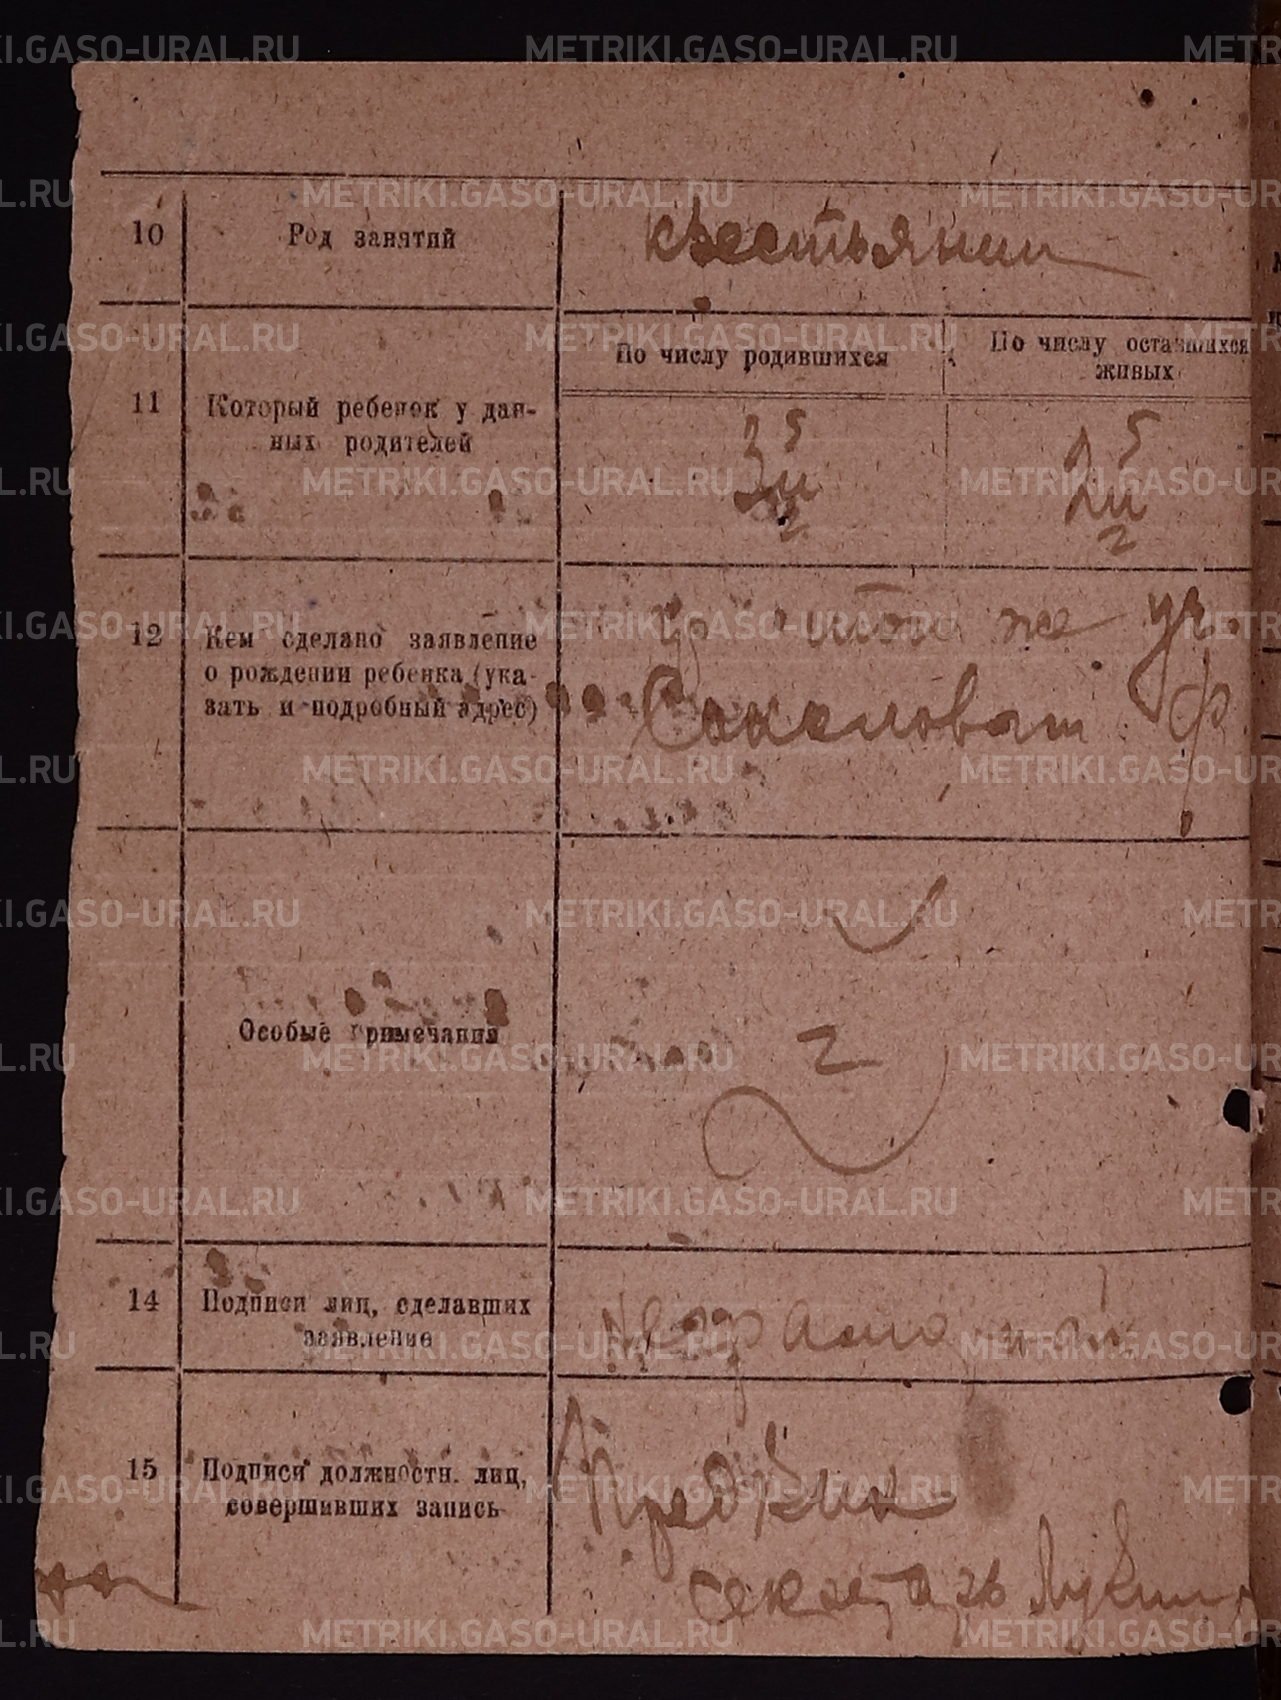 10 Род занятий крестьянин
11 Который ребенок у дан-
ных родителей
По числу родившихся
По числу оставшихся
живых
3 5
2 5
12 Кем сделано заявление
о рождении ребенка (ука-
зать и подробный адрес)
той же ул.
Соколоват Ф
Особые примечания
14 Подписи лиц, сделавших
заявление
Неграмотн
15 Подписи должностн. лиц,
совершивших запись
Пред
Секретарь Лукин
METRIKI.GASO-URAL.RU